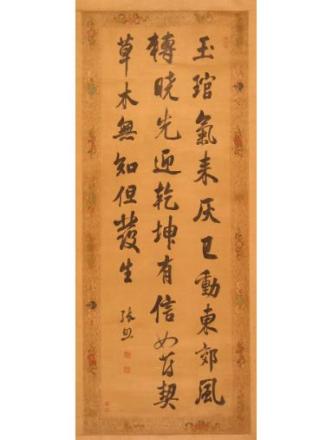 玉琯氣來灰已動東郊風
轉曉先迎乾坤有信如符契
草木無知但發生
張照